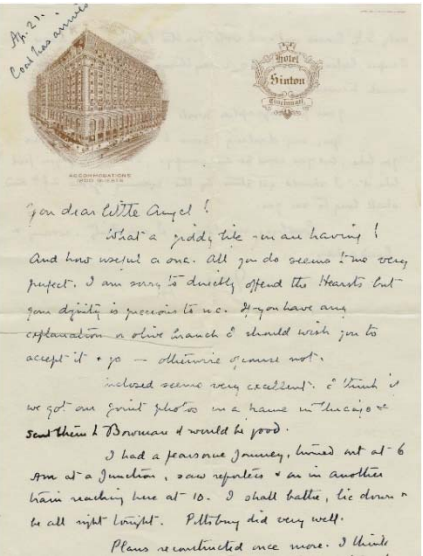 Ap. 21.
Coat has arrived
Hotel
Sinton
Cincinnati
ACCOMMODATIONS
You dear little Angel!
What a giddy life you are having!
And how useful a one. All you do seems to me very
perfect. I am sorry to directly offend the Hearsts but
your dignity is precious to me. If you have any
explanation or olive branch I should wish you to
accept it & go — otherwise of course not.
inclosed seems very excellent. I think if
we got our joint photos in a frame in Chicago &
sent them to Bowman it would be good.
I had a fearsome journey, turned out at 6
am at a Junction, saw reporters & on in another
train reaching here at 10. I shall bathe, lie down &
be all right tonight. Pittsburg did very well.
Plans reconstructed once more. I think